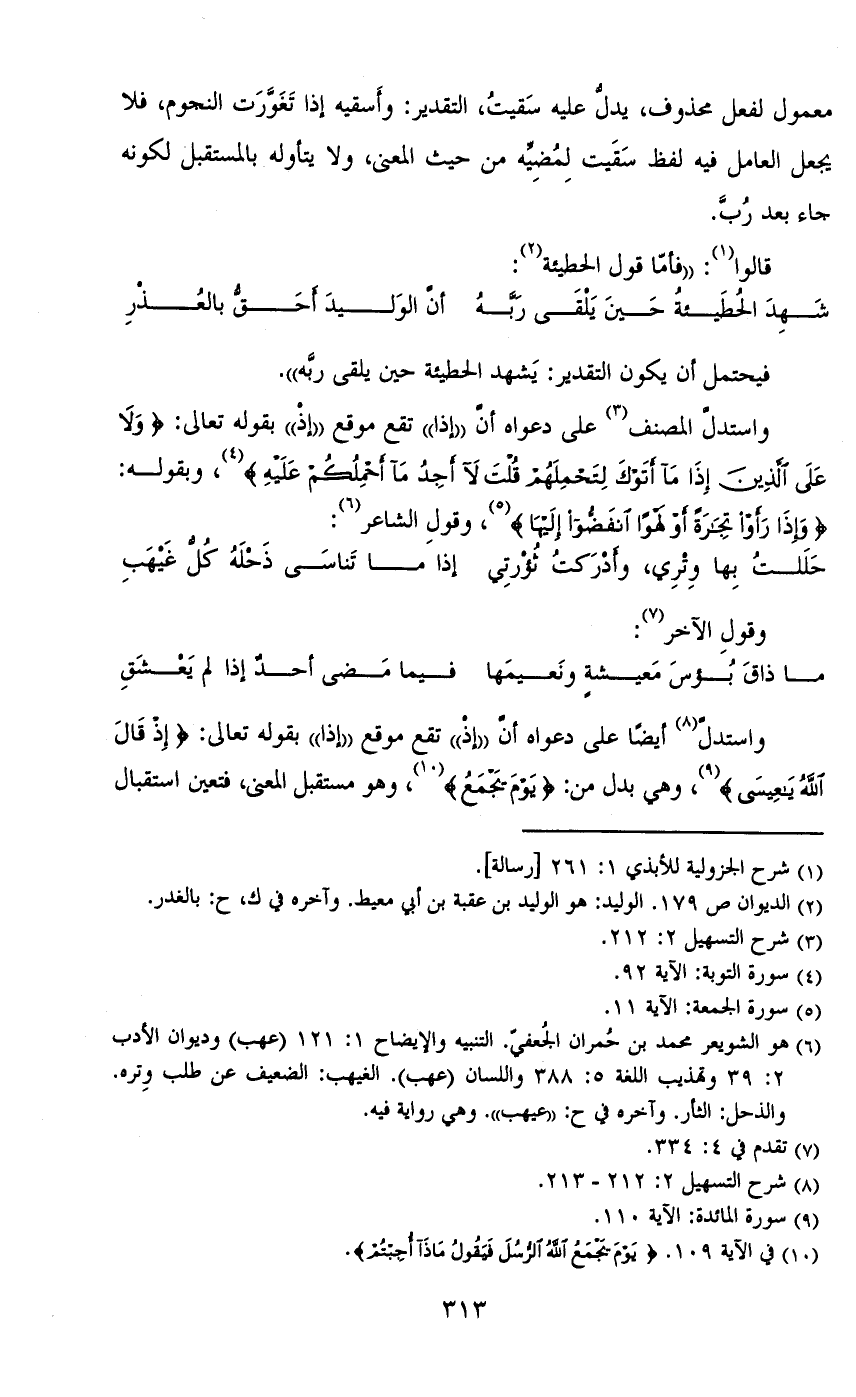 معمول لفعل محذوف، يدلُّ عليه سَقيتُ، التقدير: وأَسقيه إذا تَغَوَّرَت النجوم، فلا
يجعل العامل فيه لفظ سَقَيت لِمُضِيِّه من حيث المعنى، ولا يتأوله بالمستقبل لكونه
جاء بعد رُبَّ.
قالوا(١): ((فأمّا قول الحطيئة(٢):
شَـــهِدَ الحُطَيـــئةُ حَـــينَ يَلْقَـــى رَبَّـــهُ أنَّ الوَلـــــيدَ أَحَـــقُّ بالعُـــــذْرِ
فيحتمل أن يكون التقدير: يَشهد الحطيئة حين يلقى ربَّه)).
واستدلَّ المصنف(٣) على دعواه أنَّ ((إذا)) تقع موقع ((إذْ)) بقوله تعالى: ﴿ وَلَا
عَلَى ٱلَّذِينَ إِذَا مَآ أَتَوْكَ لِتَحْمِلَهُمْ قُلْتَ لَآ أَجِدُ مَآ أَحْمِلُكُمْ عَلَيْهِ ﴾(٤)، وبقولـه:
﴿ وَإِذَا رَأَوْاْ تِجَٰرَةً أَوْ لَهْوًا ٱنفَضُّوٓاْ إِلَيْهَا ﴾(٥)، وقولِ الشاعر(٦):
حَلَلـــتُ بِها وِتْرِي، وأَدْرَكتُ ثُؤْرتِي إذا مـــا تَناسَـــى ذَحْلَهُ كُلُّ غَيْهَبِ
وقولِ الآخر(٧):
مـــا ذاقَ بُـــؤسَ مَعيـــشةٍ ونَعـــيمَها فـــيما مَـــضى أحـــدٌ إذا لم يَعْـــشَقِ
واستدلَّ(٨) أيضًا على دعواه أنَّ ((إذْ)) تقع موقع ((إذا)) بقوله تعالى: ﴿ إِذْ قَالَ
ٱللَّهُ يَٰعِيسَى ﴾(٩)، وهي بدل من: ﴿ يَوْمَ يَجْمَعُ ﴾(١٠)، وهو مستقبل المعنى، فتعين استقبال
(١) شرح الجزولية للأبذي ١: ٢٦١ [رسالة].
(٢) الديوان ص ١٧٩. الوليد: هو الوليد بن عقبة بن أبي معيط. وآخره في ك، ح: بالغدر.
(٣) شرح التسهيل ٢: ٢١٢.
(٤) سورة التوبة: الآية ٩٢.
(٥) سورة الجمعة: الآية ١١.
(٦) هو الشويعر محمد بن حُمران الجُعفيّ. التنبيه والإيضاح ١: ١٢١ (عهب) وديوان الأدب
٢: ٣٩ وتهذيب اللغة ٥: ٣٨٨ واللسان (عهب). الغيهب: الضعيف عن طلب وِتره.
والذحل: الثأر. وآخره في ح: ((عيهب)). وهي رواية فيه.
(٧) تقدم في ٤: ٣٣٤.
(٨) شرح التسهيل ٢: ٢١٢ - ٢١٣.
(٩) سورة المائدة: الآية ١١٠.
(١٠) في الآية ١٠٩. ﴿ يَوْمَ يَجْمَعُ ٱللَّهُ ٱلرُّسُلَ فَيَقُولُ مَاذَآ أُجِبْتُمْ ﴾.
٣١٣